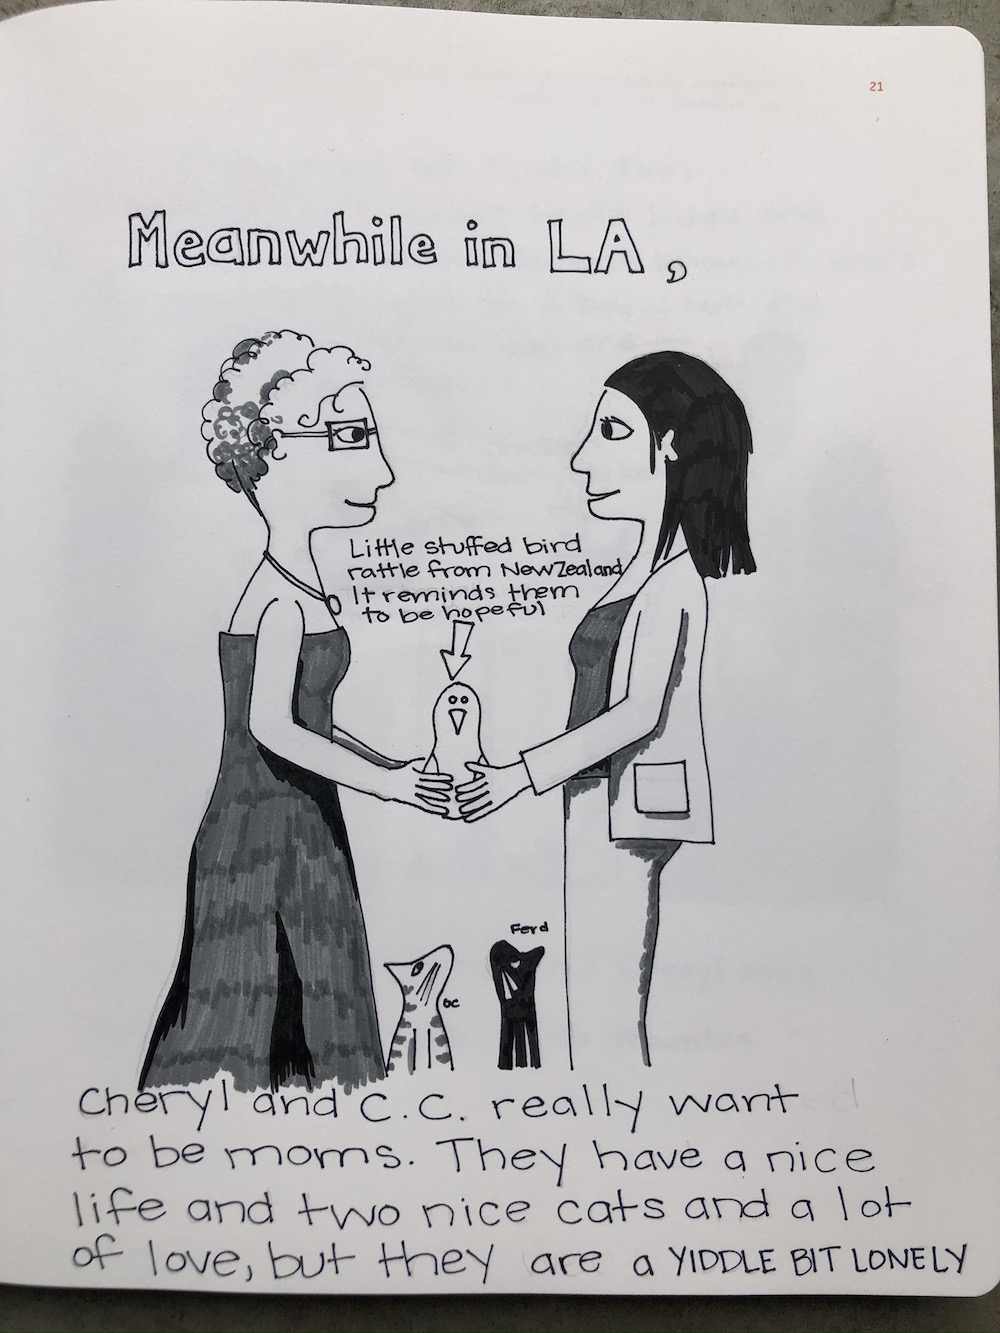 21
Meanwhile in LA,
Little stuffed bird
rattle from New Zealand
It reminds them
to be hopeful
Ferd
Cheryl and C.C. really want
to be moms. They have a nice
life and two nice cats and a lot
of love, but they are a YIDDLE BIT LONELY